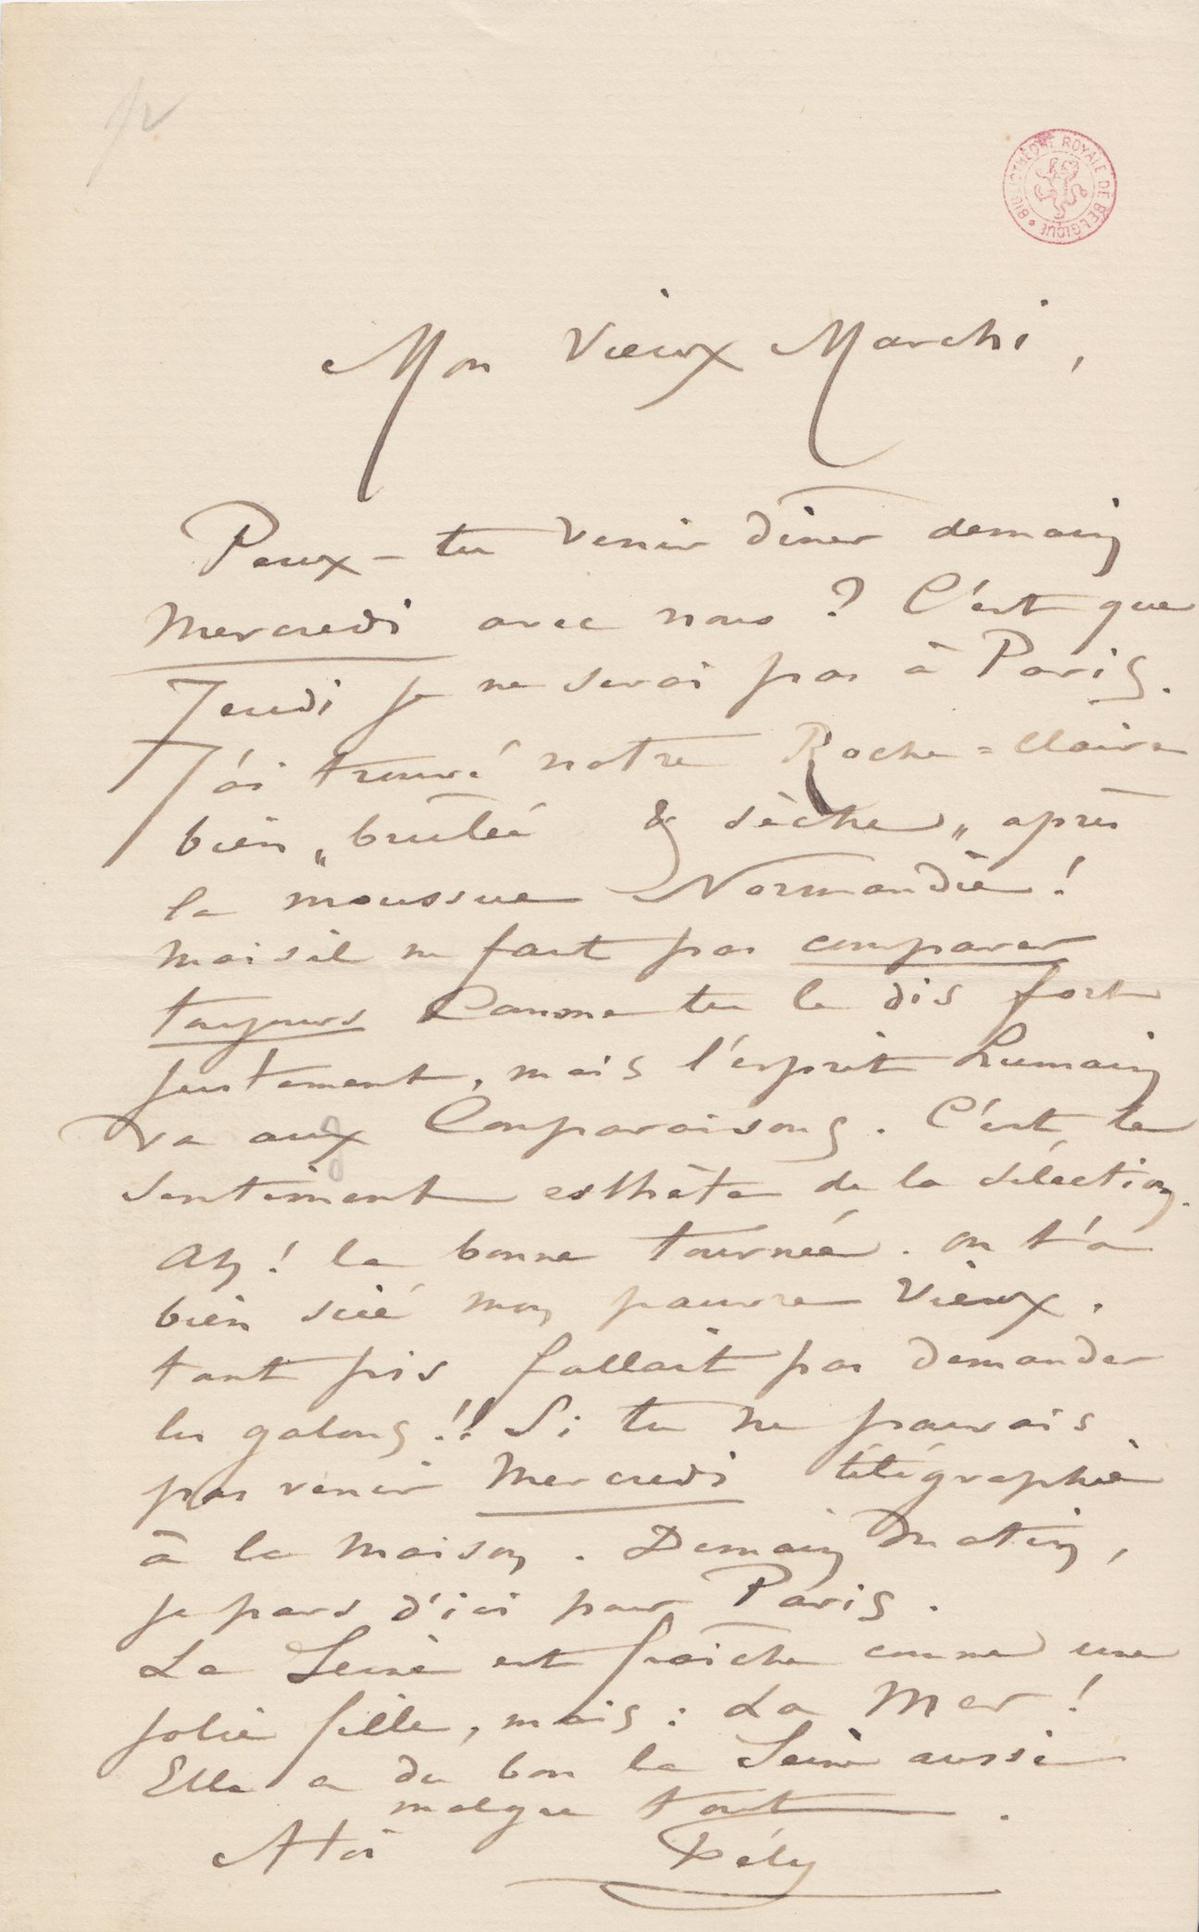 BIBLIOTHÈQUE ROYALE DE BELGIQUE
Mon Vieux Marchi,
Peux-tu venir diner demain
Mercredi avec nous ? C'est que
Jeudi je ne serai pas à Paris.
J'ai trouvé notre Roche=Claire
bien „brulée & sèche„ après
la moussue Normandie !
mais il ne faut pas comparer
toujours Comme tu le dis fort
justement, mais l'esprit humain
va aux Comparaisons. C'est le
sentiment esthète de la sélection.
Ah ! la bonne tournée. on t'a
bien scié mon pauvre Vieux.
tant pis fallait pas demander
les galons !! Si tu ne pouvais
pas venir Mercredi télégraphie
à la maison. Demain Matin,
je pars d'ici pour Paris.
La Seine est fraîche comme une
jolie fille, mais : La Mer !
Elle a du bon la Seine aussi
malgré tout.
A toi
Fély